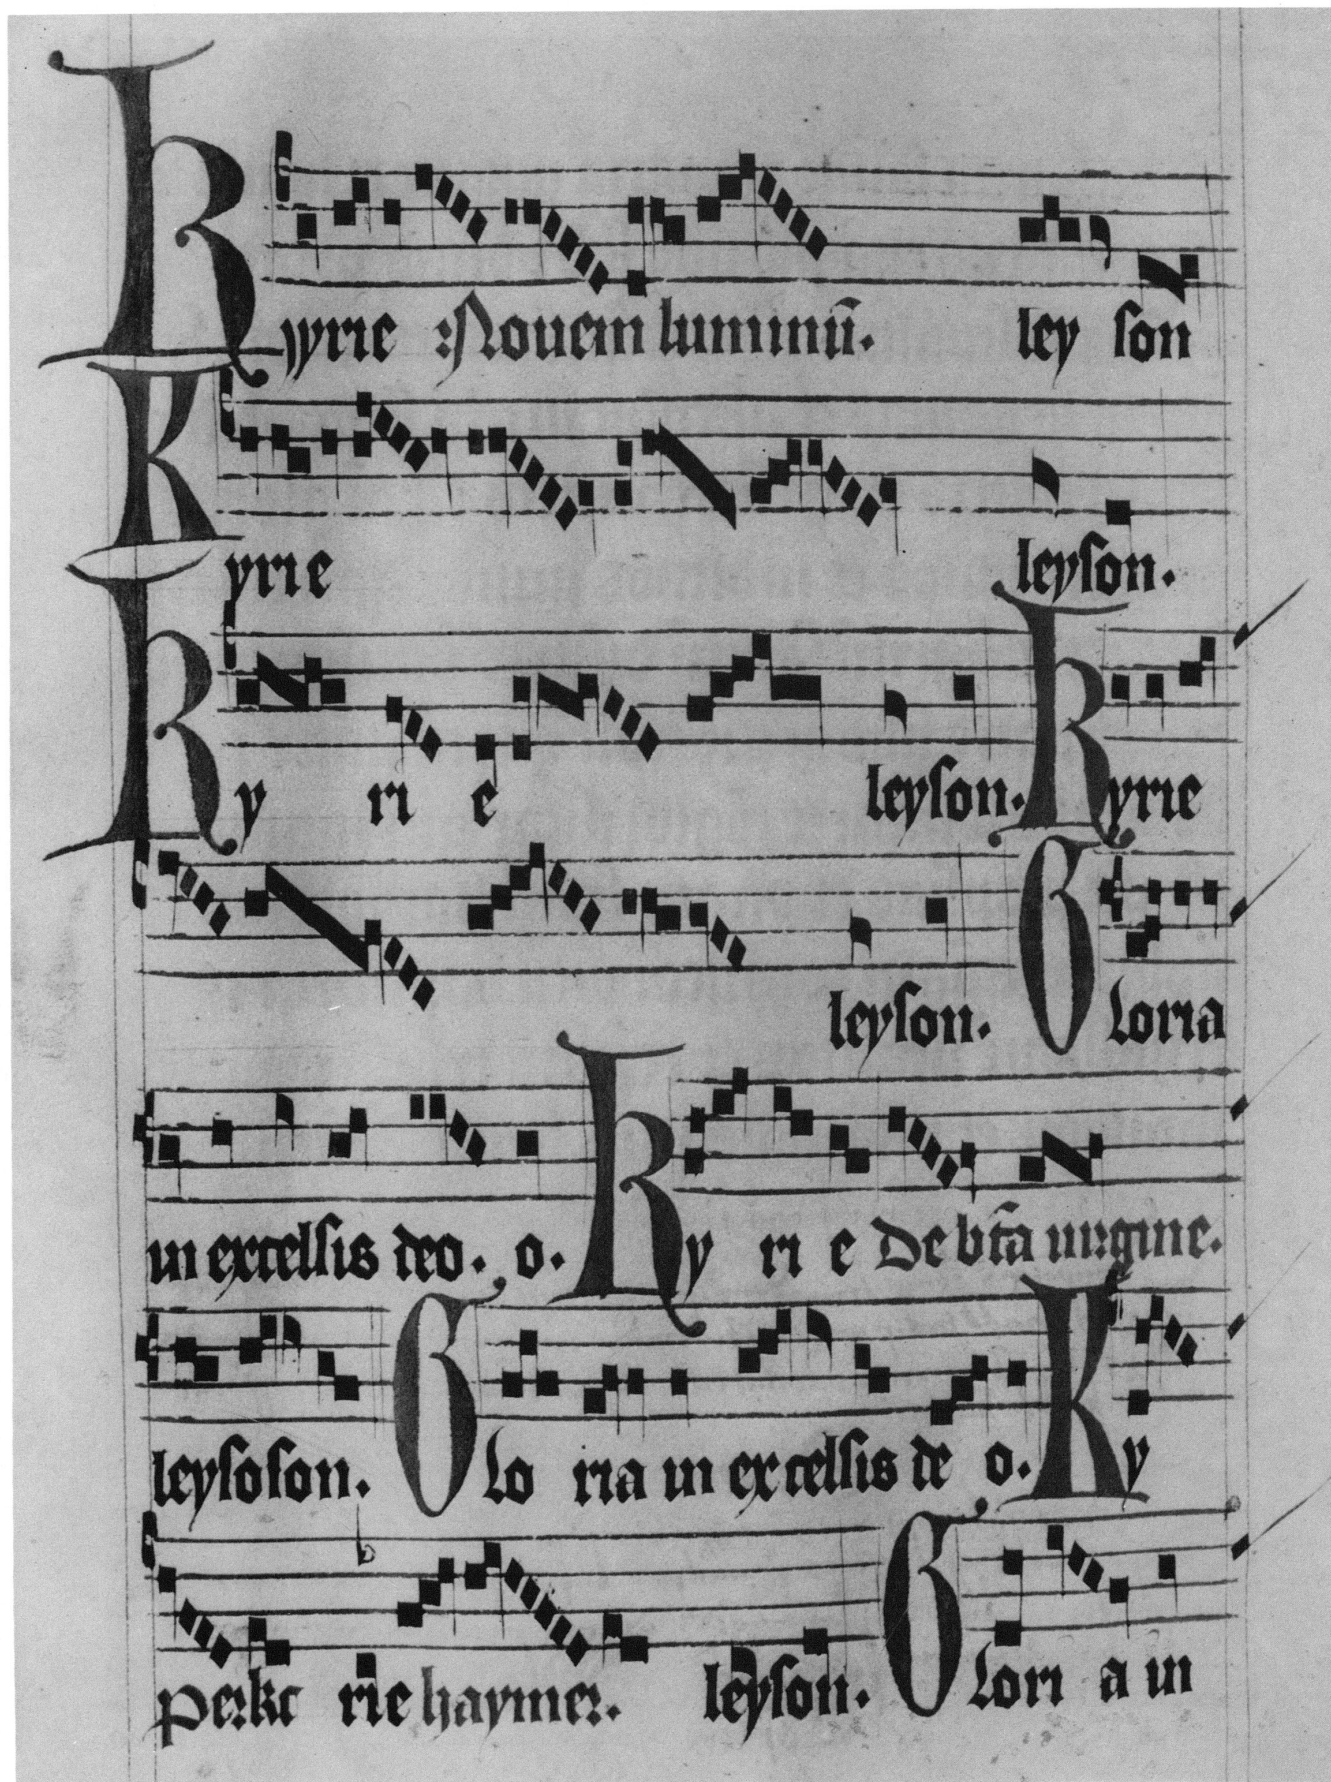 Kyrie Nouem luminū. ley son
Kyrie leyson.
Ky ri e leyson. Kyrie
leyson. Gloria
in excelsis deo. o. Ky ri e De bt̄a uirgine.
leysoson. Glo ria in excelsis de o. Ky
rie haymer. leyson. Glori a in